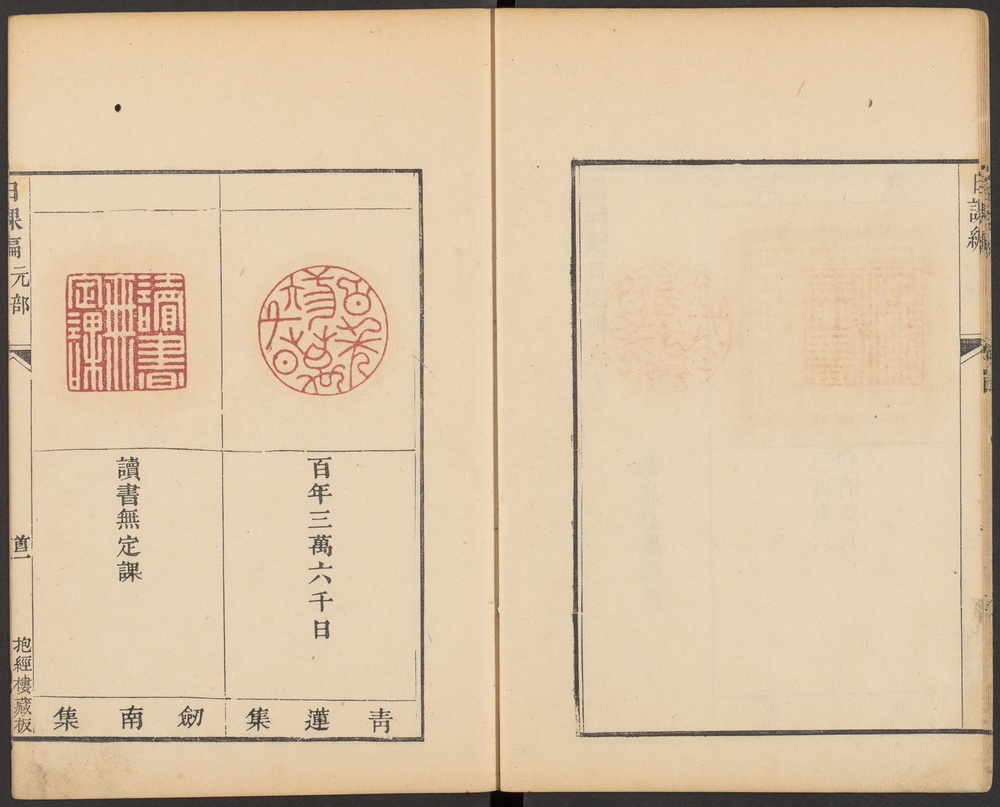 日課編
百年三萬六千日
青蓮集
讀書無定課
劒南集
讀書無定課
日課編元部
首一
抱經樓藏板